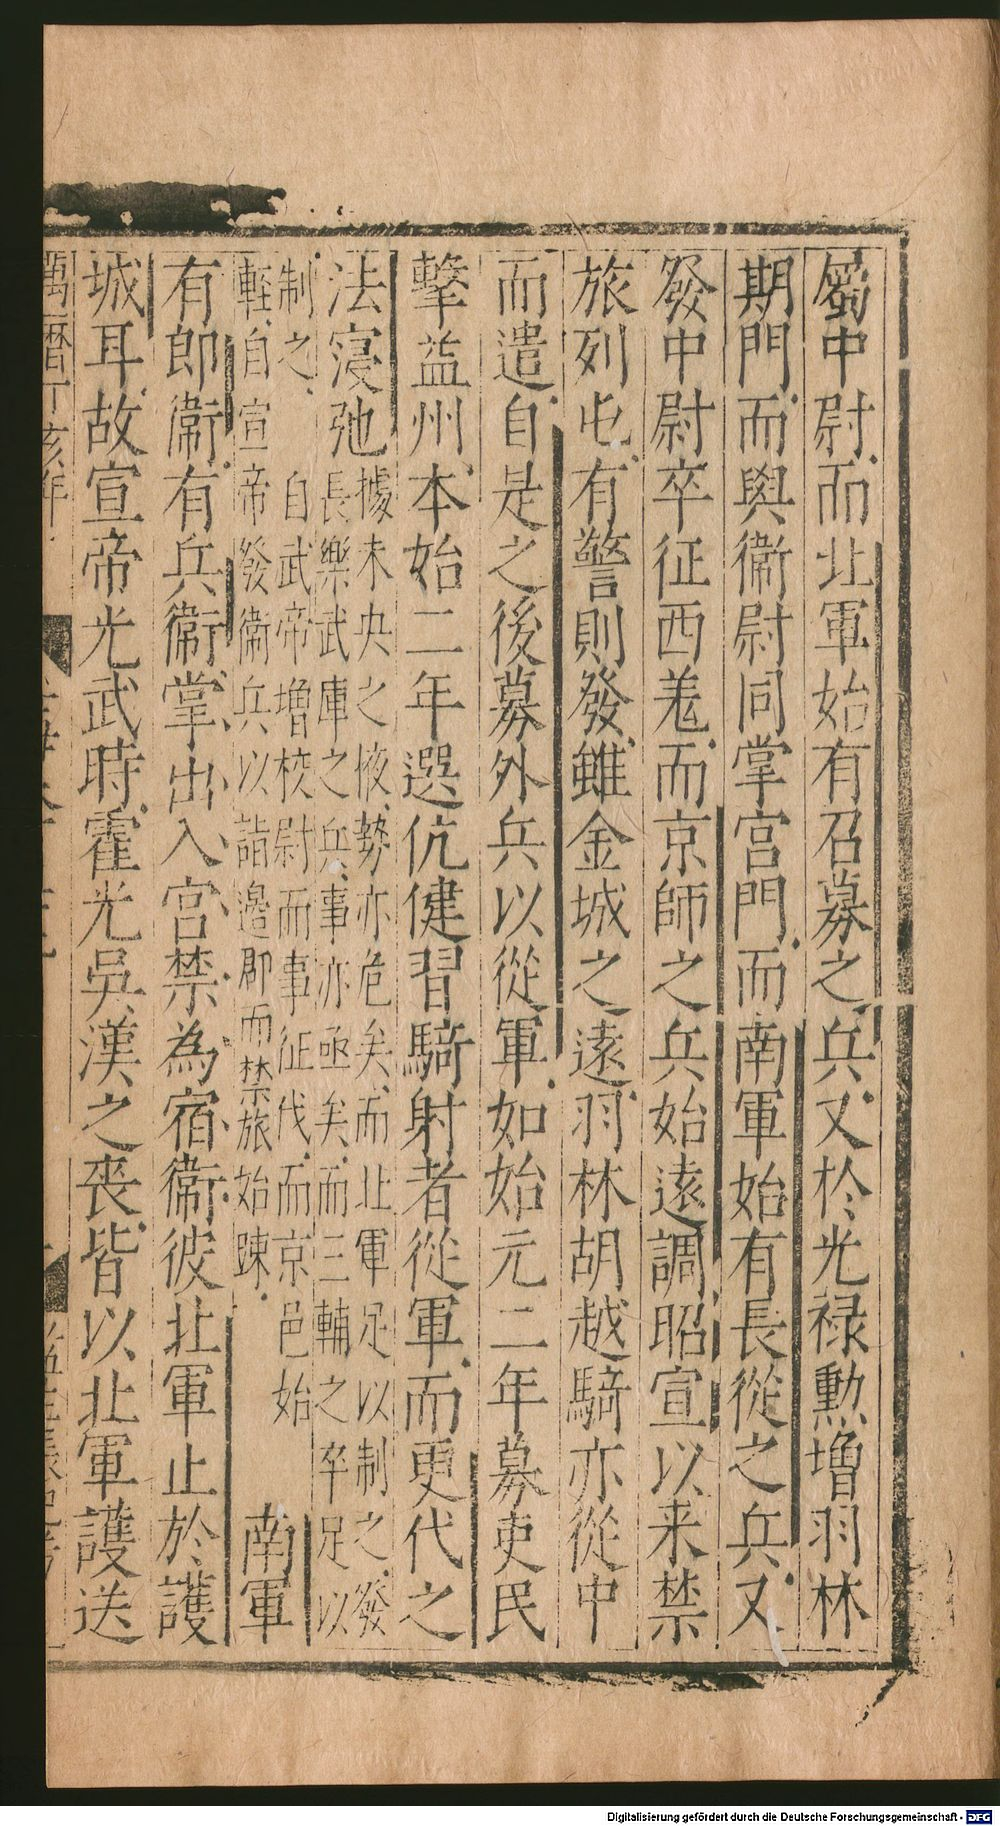 屬中尉而北軍始有召募之兵又於光祿勳增羽林
期門而與衛尉同掌宮門而南軍始有長從之兵又
發中尉卒征西羌而京師之兵始遠調昭宣以来禁
旅列屯有警則發雖金城之遠羽林胡越騎亦從中
而遣自是之後募外兵以從軍如始元二年募吏民
擊益州本始二年選伉健習騎射者從軍而更代之
法寖弛
據未央之掖勢亦危矣而北軍足以制之發
長樂武庫之兵事亦亟矣而三輔之卒足以
制之
自武帝增校尉而事征伐而京邑始
輕自宣帝發衛兵以詣邊郡而禁旅始踈
南軍
有郎衛有兵衛掌出入宮禁為宿衛彼北軍止於護
城耳故宣帝光武時霍光吳漢之喪皆以北軍護送
萬曆丁亥年
Digitalisierung gefördert durch die Deutsche Forschungsgemeinschaft - DFG